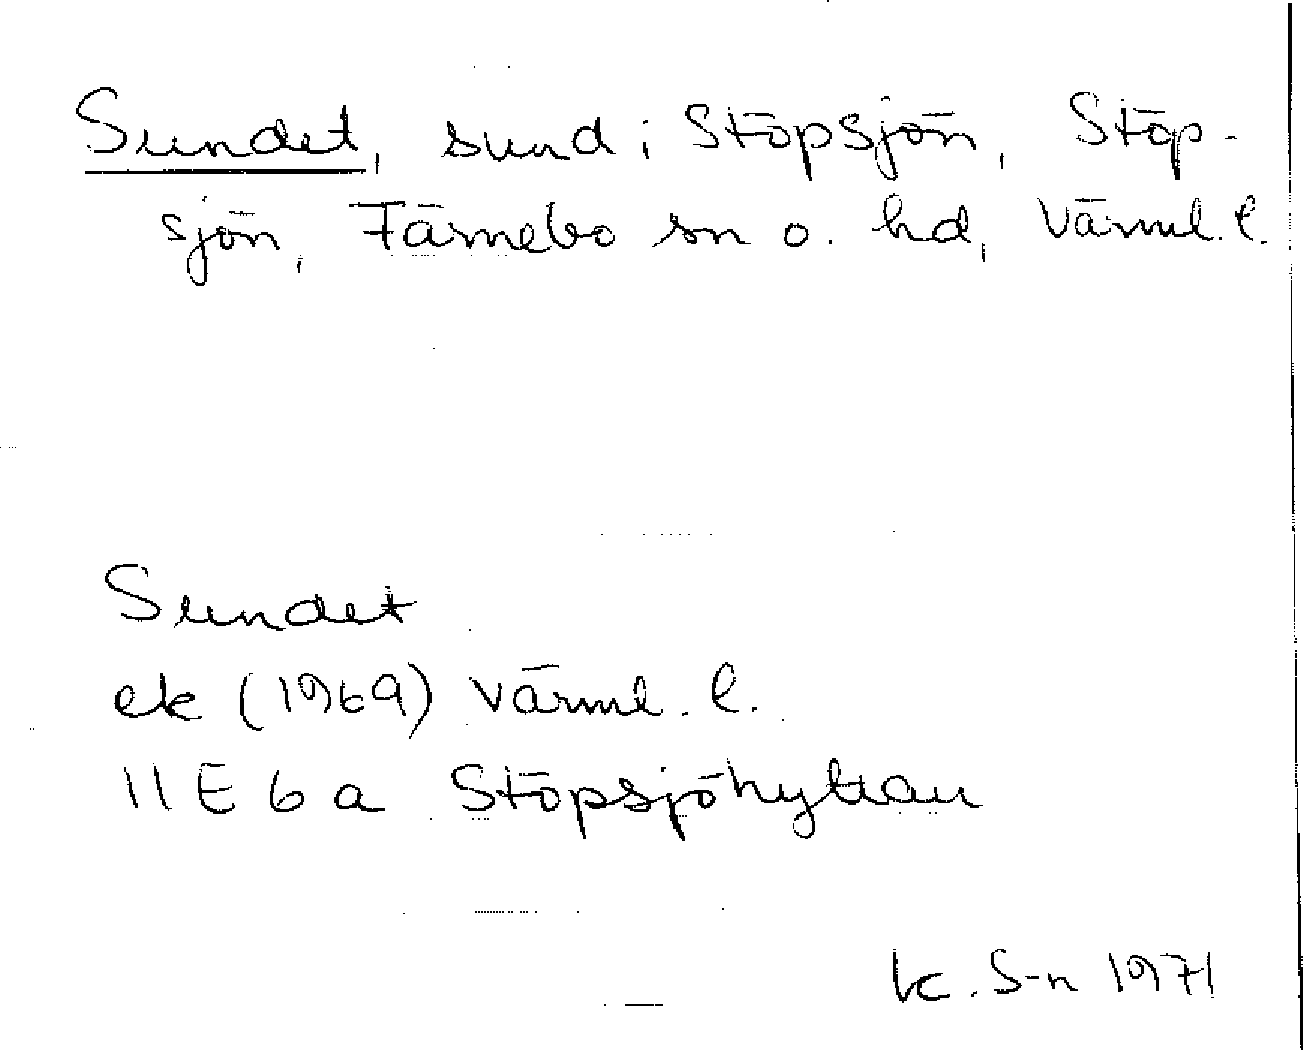 Sundet, sund i Stöpsjön, Stöp-
sjön, Färnebo sn o. hd, Värml. l.
Sundet
ek (1969) Värml. l.
11E 6a Stöpsjöhyttan
K. S-n 1971